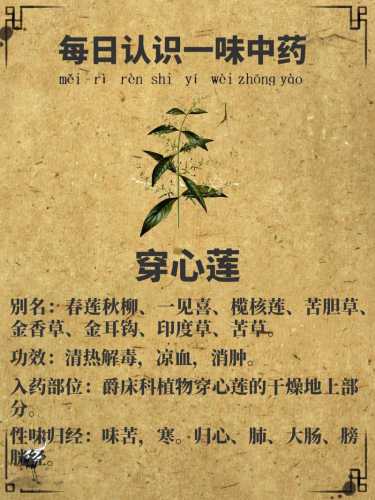 每日认识一味中药
měi rì rèn shi yí wèi zhōng yào
穿心莲
别名：春莲秋柳、一见喜、榄核莲、苦胆草、
金香草、金耳钩、印度草、苦草。
功效：清热解毒，凉血，消肿。
入药部位：爵床科植物穿心莲的干燥地上部
分。
性味归经：味苦，寒。归心、肺、大肠、膀
胱经。